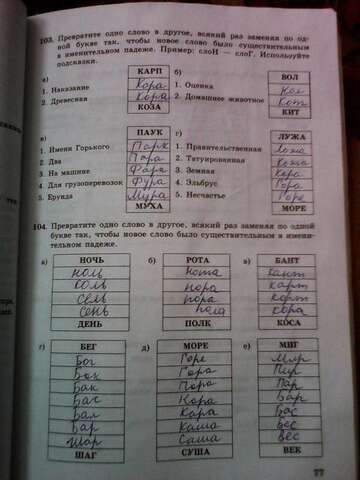 103. Превратите одно слово в другое, всякий раз заменяя по од-
ной букве так, чтобы новое слово было существительным
в именительном падеже. Пример: слоН — слоГ. Используйте
подсказки.
а)
КАРП
1. Наказание Кара
2. Древесная Кора
КОЗА
б)
ВОЛ
1. Оценка Кол
2. Домашнее животное Кот
КИТ
в)
ПАУК
1. Имени Горького Парк
2. Два Пара
3. На машине Фара
4. Для грузоперевозок Фура
5. Ерунда Мура
МУХА
г)
ЛУЖА
1. Правительственная Ложа
2. Татуированная Кожа
3. Земная Кора
4. Эльбрус Гора
5. Несчастье Горе
МОРЕ
104. Превратите одно слово в другое, всякий раз заменяя по одной
букве так, чтобы новое слово было существительным в имени-
тельном падеже.
а)
НОЧЬ
ноль
соль
сель
сень
ДЕНЬ
б)
РОТА
нота
нора
пора
пола
ПОЛК
в)
БАНТ
кант
карт
корт
кора
КОСА
г)
БЕГ
Бог
Бок
Бак
Баг
Бал
Бар
Шар
ШАГ
д)
МОРЕ
Горе
Гора
Пора
Кора
Кара
Каша
Саша
СУША
е)
МИГ
Мир
Пир
Пар
Бар
Бас
Бес
Вес
ВЕК
77